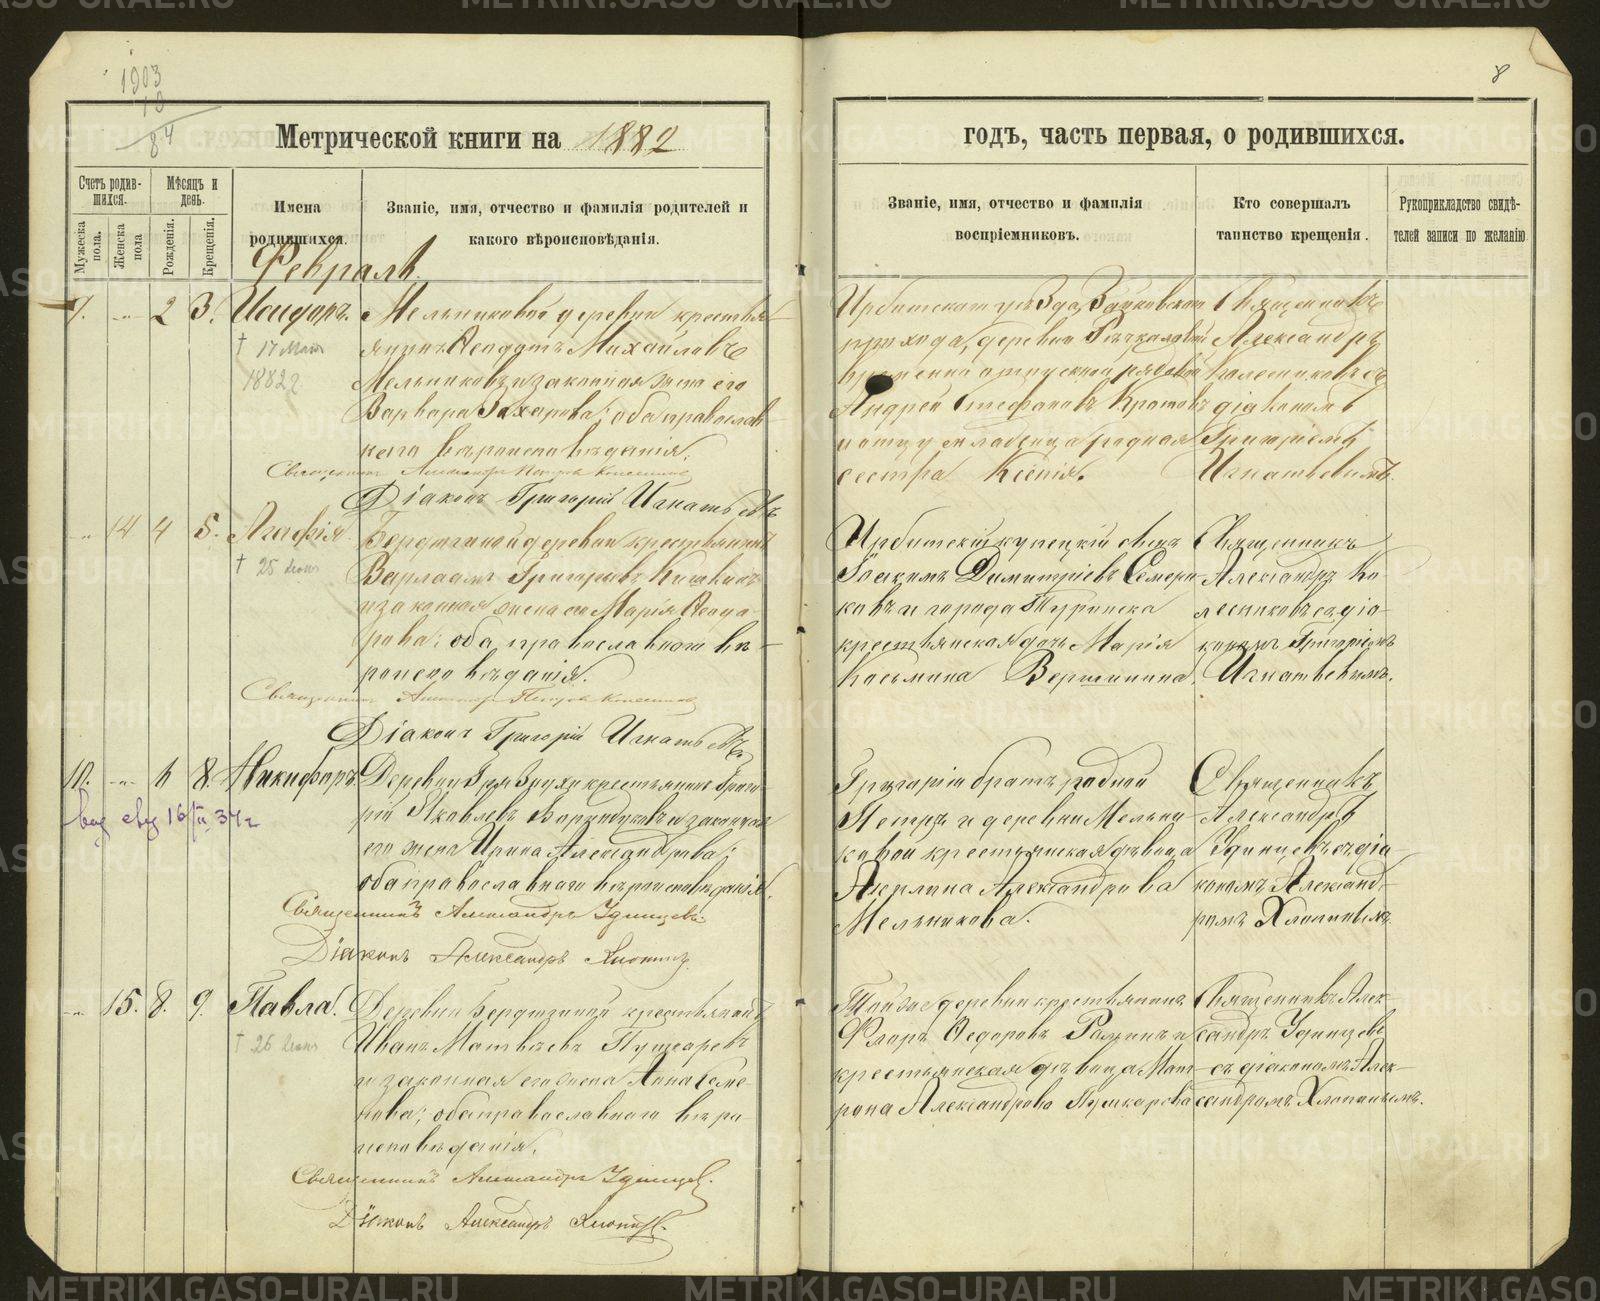 1903
18
84
8
Метрической книги на 1882
годъ, часть первая, о родившихся.
Счетъ родившихся.
Мужеска пола.
Женска пола
Мѣсяцъ и день.
Рожденія.
Крещенія.
Имена родившихся.
Званіе, имя, отчество и фамилія родителей и какого вѣроисповѣданія.
Званіе, имя, отчество и фамилія воспріемниковъ.
Кто совершалъ таинство крещенія.
Рукоприкладство свидѣтелей записи по желанію
Февраль
9. -"- 2 3. Исидоръ.
† 17 Мая
1882
Мельниковой деревни крестья-
янинъ Ѳеодотъ Михайловъ
Мельниковъ и законная жена его
Варвара Захарова; оба православ-
наго вѣроисповѣданія.
Священникъ Александръ Петровъ
Діаконъ Григорій Игнатьевъ
Ирбитскаго уѣзда,
прихода, деревни
отпускной рядовой
Андрей Стефановъ Кротовъ
и отцу младенца родная
сестра Ксенія.
Священникъ
Александръ
Колесниковъ съ
діакономъ
Григоріемъ
Игнатьевымъ.
-"- 14 4 5. Агафія
† 25 Іюня
деревни крестьянинъ
Варлаамъ Григорьевъ
и законная жена его Марія Ѳеодо-
рова; оба православнаго вѣ-
роисповѣданія.
Священникъ Александръ Петровъ
Діаконъ Григорій Игнатьевъ
Ирбитскій купецкій сынъ
Іоакимъ Димитріевъ Семери-
ковъ и города Туринска
крестьянская дочь Марія
Косьмина Вершинина.
Священникъ
Александръ Ко-
лесниковъ съ діа-
кономъ Григоріемъ
Игнатьевымъ.
10. -"- 6 8. Никифоръ.
16/II 34 г
Деревни крестьянинъ Григо-
рій Яковлевъ и законная
его жена Ирина Александрова;
оба православнаго вѣроисповѣданія.
Священникъ Александръ Удинцевъ
Діаконъ Александръ Хлопинъ
Григорія братъ родной
Петръ и деревни Мельни-
ковой крестьянская дѣвица
Акилина Александрова
Мельникова.
Священникъ
Александръ
Удинцевъ съ діа-
кономъ Александ-
ромъ Хлопинымъ.
-"- 15. 8. 9. Павла.
† 26 Іюня
Деревни крестьянинъ
Иванъ Матвѣевъ Пушкаревъ
и законная его жена Анна Семе-
нова; оба православнаго вѣро-
исповѣданія.
Священникъ Александръ Удинцевъ.
Діаконъ Александръ Хлопинъ.
деревни крестьянинъ
Флоръ Ѳедоровъ и
крестьянская дѣвица Мат-
рона Александрова Пушкарева
Священникъ Алек-
сандръ Удинцевъ
съ діакономъ Алек-
сандромъ Хлопинымъ.
METRIKI.GASO-URAL.RU